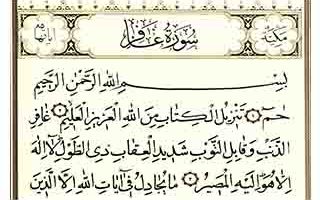 مكية سورة غافر آياتها
بِسْمِ اللهِ الرَّحْمٰنِ الرَّحِيمِ
حٰمٓ ۝ تَنْزِيلُ الْكِتَابِ مِنَ اللهِ الْعَزِيزِ الْعَلِيمِ ۝ غَافِرِ
الذَّنْبِ وَقَابِلِ التَّوْبِ شَدِيدِ الْعِقَابِ ذِى الطَّوْلِ لَا إِلٰهَ
إِلَّا هُوَ إِلَيْهِ الْمَصِيرُ ۝ مَا يُجَادِلُ فِى آيَاتِ اللهِ إِلَّا الَّذِينَ